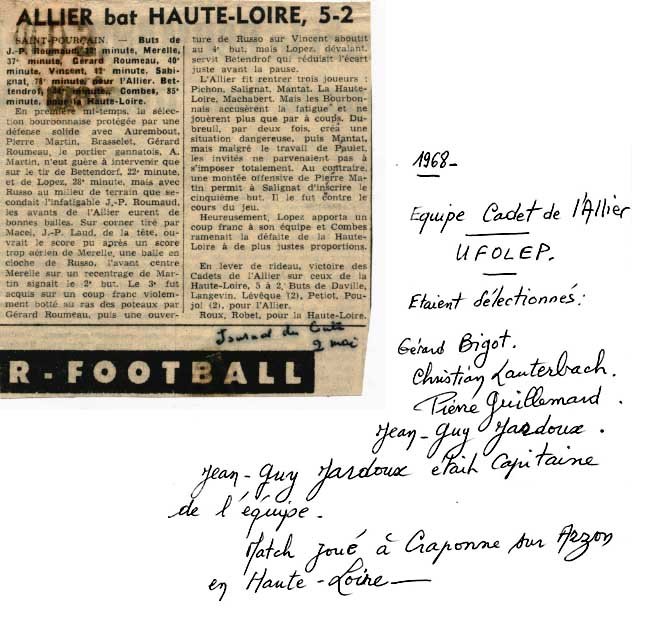 ALLIER bat HAUTE-LOIRE, 5-2
SAINT-POURÇAIN. — Buts de
J.-P. Roumaud, minute, Merelle,
37e minute, Gérard Roumeau, 40e
minute, Vincent, minute. Sabi-
gnat, 78e minute, pour l'Allier. Bet-
tendrof, minute, Combes, 85e
minute, pour la Haute-Loire.
En première mi-temps, la sélec-
tion bourbonnaise protégée par une
défense solide avec Aurembout,
Pierre Martin, Brasselet, Gérard
Roumeau, le portier gannatois, A.
Martin, n'eut guère à intervenir que
sur le tir de Bettendorf, 22e minute,
et de Lopez, 28e minute, mais avec
Russo au milieu de terrain que se-
condait l'infatigable J.-P. Roumaud,
les avants de l'Allier eurent de
bonnes balles. Sur corner tiré par
Macej, J.-P. Laud, de la tête, ou-
vrait le score pu après un score
trop aérien de Merelle, une balle en
cloche de Russo, l'avant centre
Merelle sur un recentrage de Mar-
tin signalt le 2e but. Le 3e fut
acquis sur un coup franc violem-
ment botté au ras des poteaux par
Gérard Roumeau, puis une ouver-
ture de Russo sur Vincent aboutit
au 4e but, mais Lopez, dévalant,
servit Betendrof qui réduisit l'écart
juste avant la pause.
L'Allier fit rentrer trois joueurs :
Pichon, Salignat, Mantat. La Haute-
Loire, Machabert. Mais les Bourbon-
nais accusèrent la fatigue et ne
jouèrent plus que par à coups. Du-
breuil, par deux fois, créa une
situation dangereuse, puis Mantat,
mais malgré le travail de Paulet,
les invités ne parvenaient pas à
s'imposer totalement. Au contraire,
une montée offensive de Pierre Ma-
tin permit à Salignat d'inscrire le
cinquième but. Il le fut contre le
cours du jeu.
Heureusement, Lopez apporta un
coup franc à son équipe et Combes
ramenait la défaite de la Haute-
Loire à de plus justes proportions.
En lever de rideau, victoire des
Cadets de l'Allier sur ceux de la
Haute-Loire, 5 à 2. Buts de Daville,
Langevin, Lévêque (2), Petiot, Pou-
jol (2), pour l'Allier.
Roux, Robet, pour la Haute-Loire.
Journal du Centre
2 mai
R - FOOTBALL
1968-
Equipe Cadet de l'Allier
UFOLEP.
Etaient sélectionnés :
Gérard Bigot.
Christian Lauterbach.
Pierre Guillemard.
Jean-Guy Jardoux.
Jean-Guy Jardoux était Capitaine
de l'équipe.
Match joué à Craponne sur Arzon
en Haute-Loire—